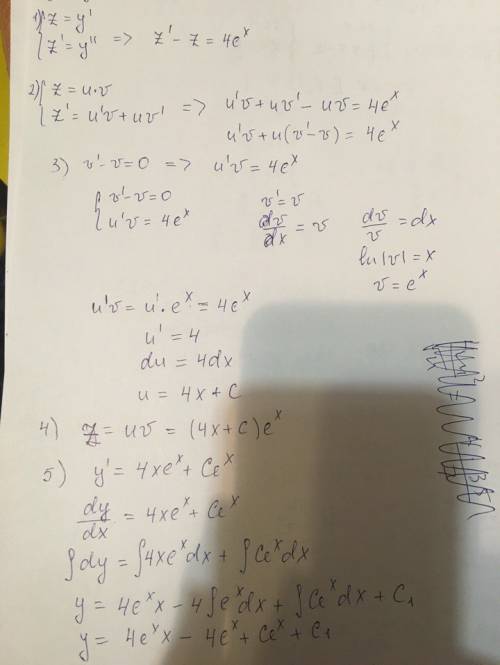 1) { z = y'
{ z' = y'' => z' - z = 4e^x
2) { z = u·v
{ z' = u'v + uv' => u'v + uv' - uv = 4e^x
u'v + u(v' - v) = 4e^x
3) v' - v = 0 => u'v = 4e^x
{ v' - v = 0
{ u'v = 4e^x
v' = v
dv/dx = v
dv/v = dx
ln|v| = x
v = e^x
u'v = u'·e^x = 4e^x
u' = 4
du = 4dx
u = 4x + C
4) z = uv = (4x + c)e^x
5) y' = 4xe^x + Ce^x
dy/dx = 4xe^x + Ce^x
∫dy = ∫4xe^x dx + ∫Ce^x dx
y = 4e^x x - 4∫e^x dx + ∫Ce^x dx + C₁
y = 4e^x x - 4e^x + Ce^x + C₁